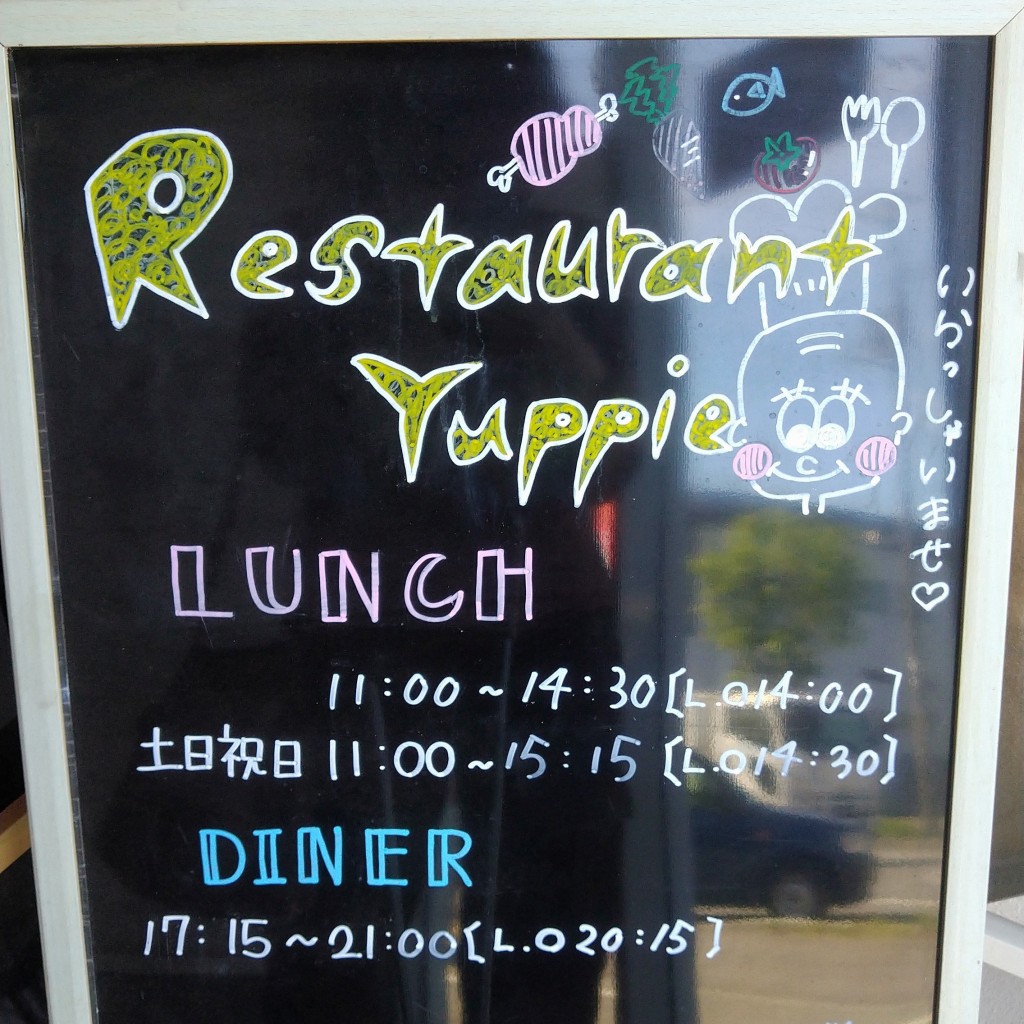 Restaurant
Yuppie
いらっしゃいませ♡
LUNCH
11:00~14:30[L.O14:00]
土日祝日 11:00~15:15 [L.O14:30]
DINER
17:15~21:00[L.O20:15]